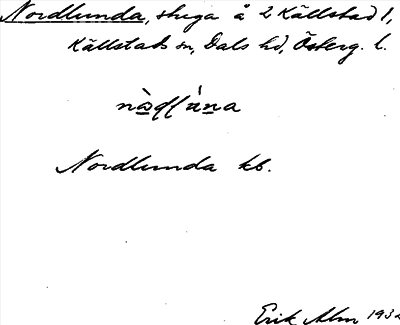 Nordlunda, stuga å 2 Källstad 1,
Källstads sn, Dals hd, Österg. l.
Nordlunda kb.
Erik Alm 193